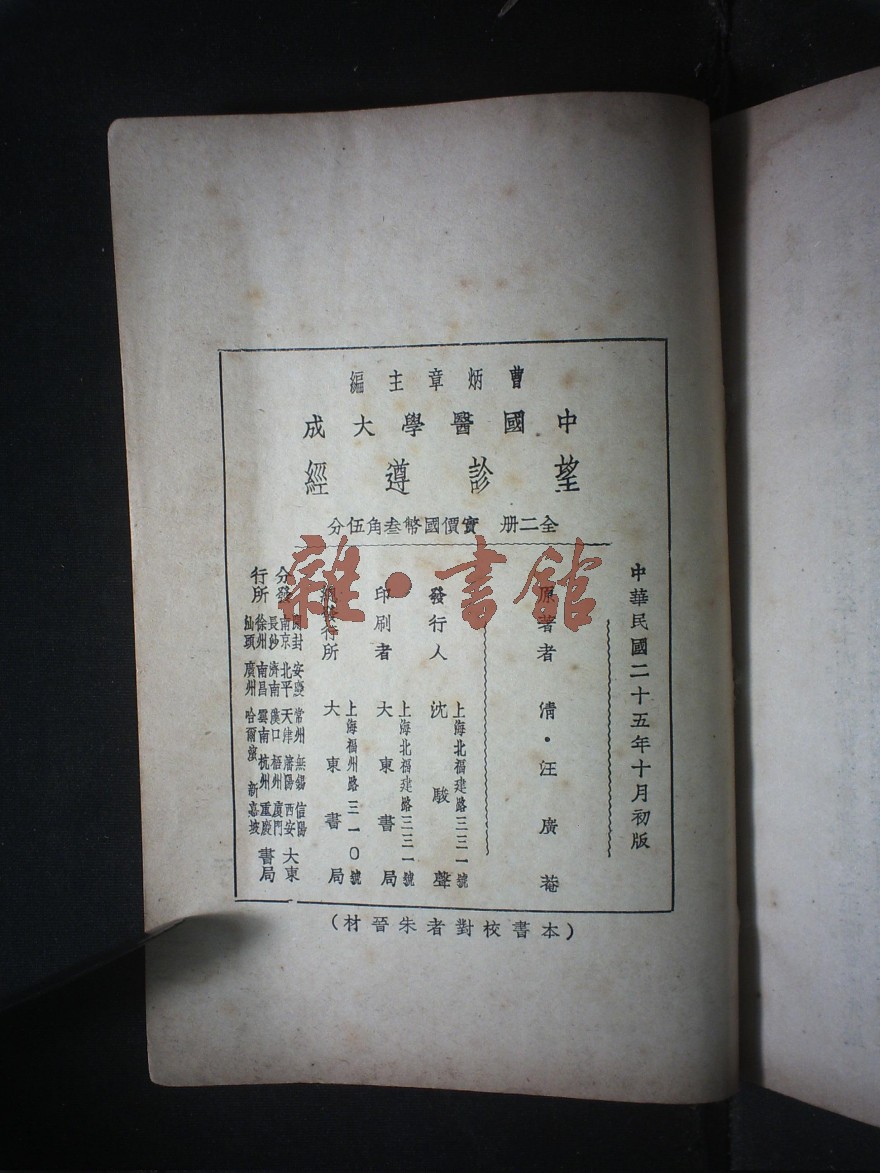 曹炳章主編
中國醫學大成
望診遵經
全二册 實價國幣叁角伍分
中華民國二十五年十月初版
原著者 清·汪廣菴
發行人 沈駿聲
上海北福建路三三一號
印刷者 大東書局
上海北福建路三三一號
總發行所 大東書局
上海福州路三一〇號
分發行所
開封 安慶 常州 無錫 信陽
南京 北平 天津 瀋陽 西安
長沙 濟南 漢口 梧州 廈門
徐州 南昌 雲南 杭州 重慶
汕頭 廣州 哈爾濱 新嘉坡
大東書局
(本書校對者朱晉材)
雜·書館